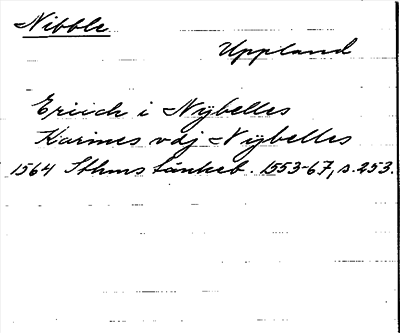 Nibble
Uppland
Eriich i Nÿbelles
Karines vdj Nÿbelles
1564 Sthms tänkeb. 1553-67, s. 253.